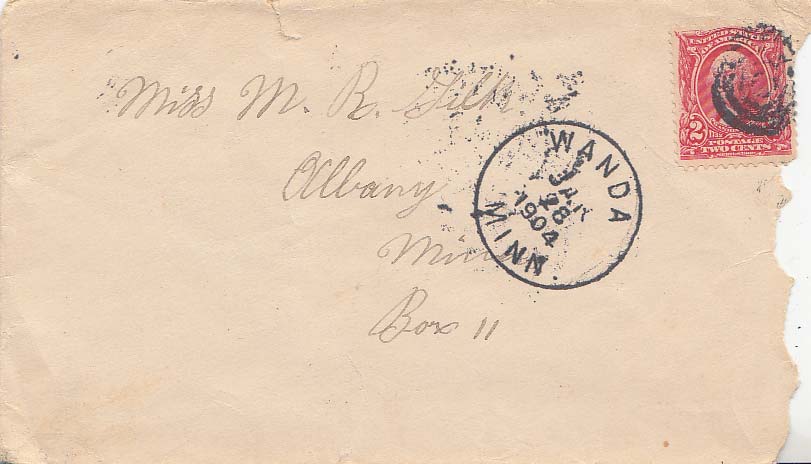 UNITED STATES
OF AMERICA
2 2
POSTAGE
TWO CENTS
Miss M. R.
WANDA
JAN
28
1904
MINN.
Albany
Minn
Box 11